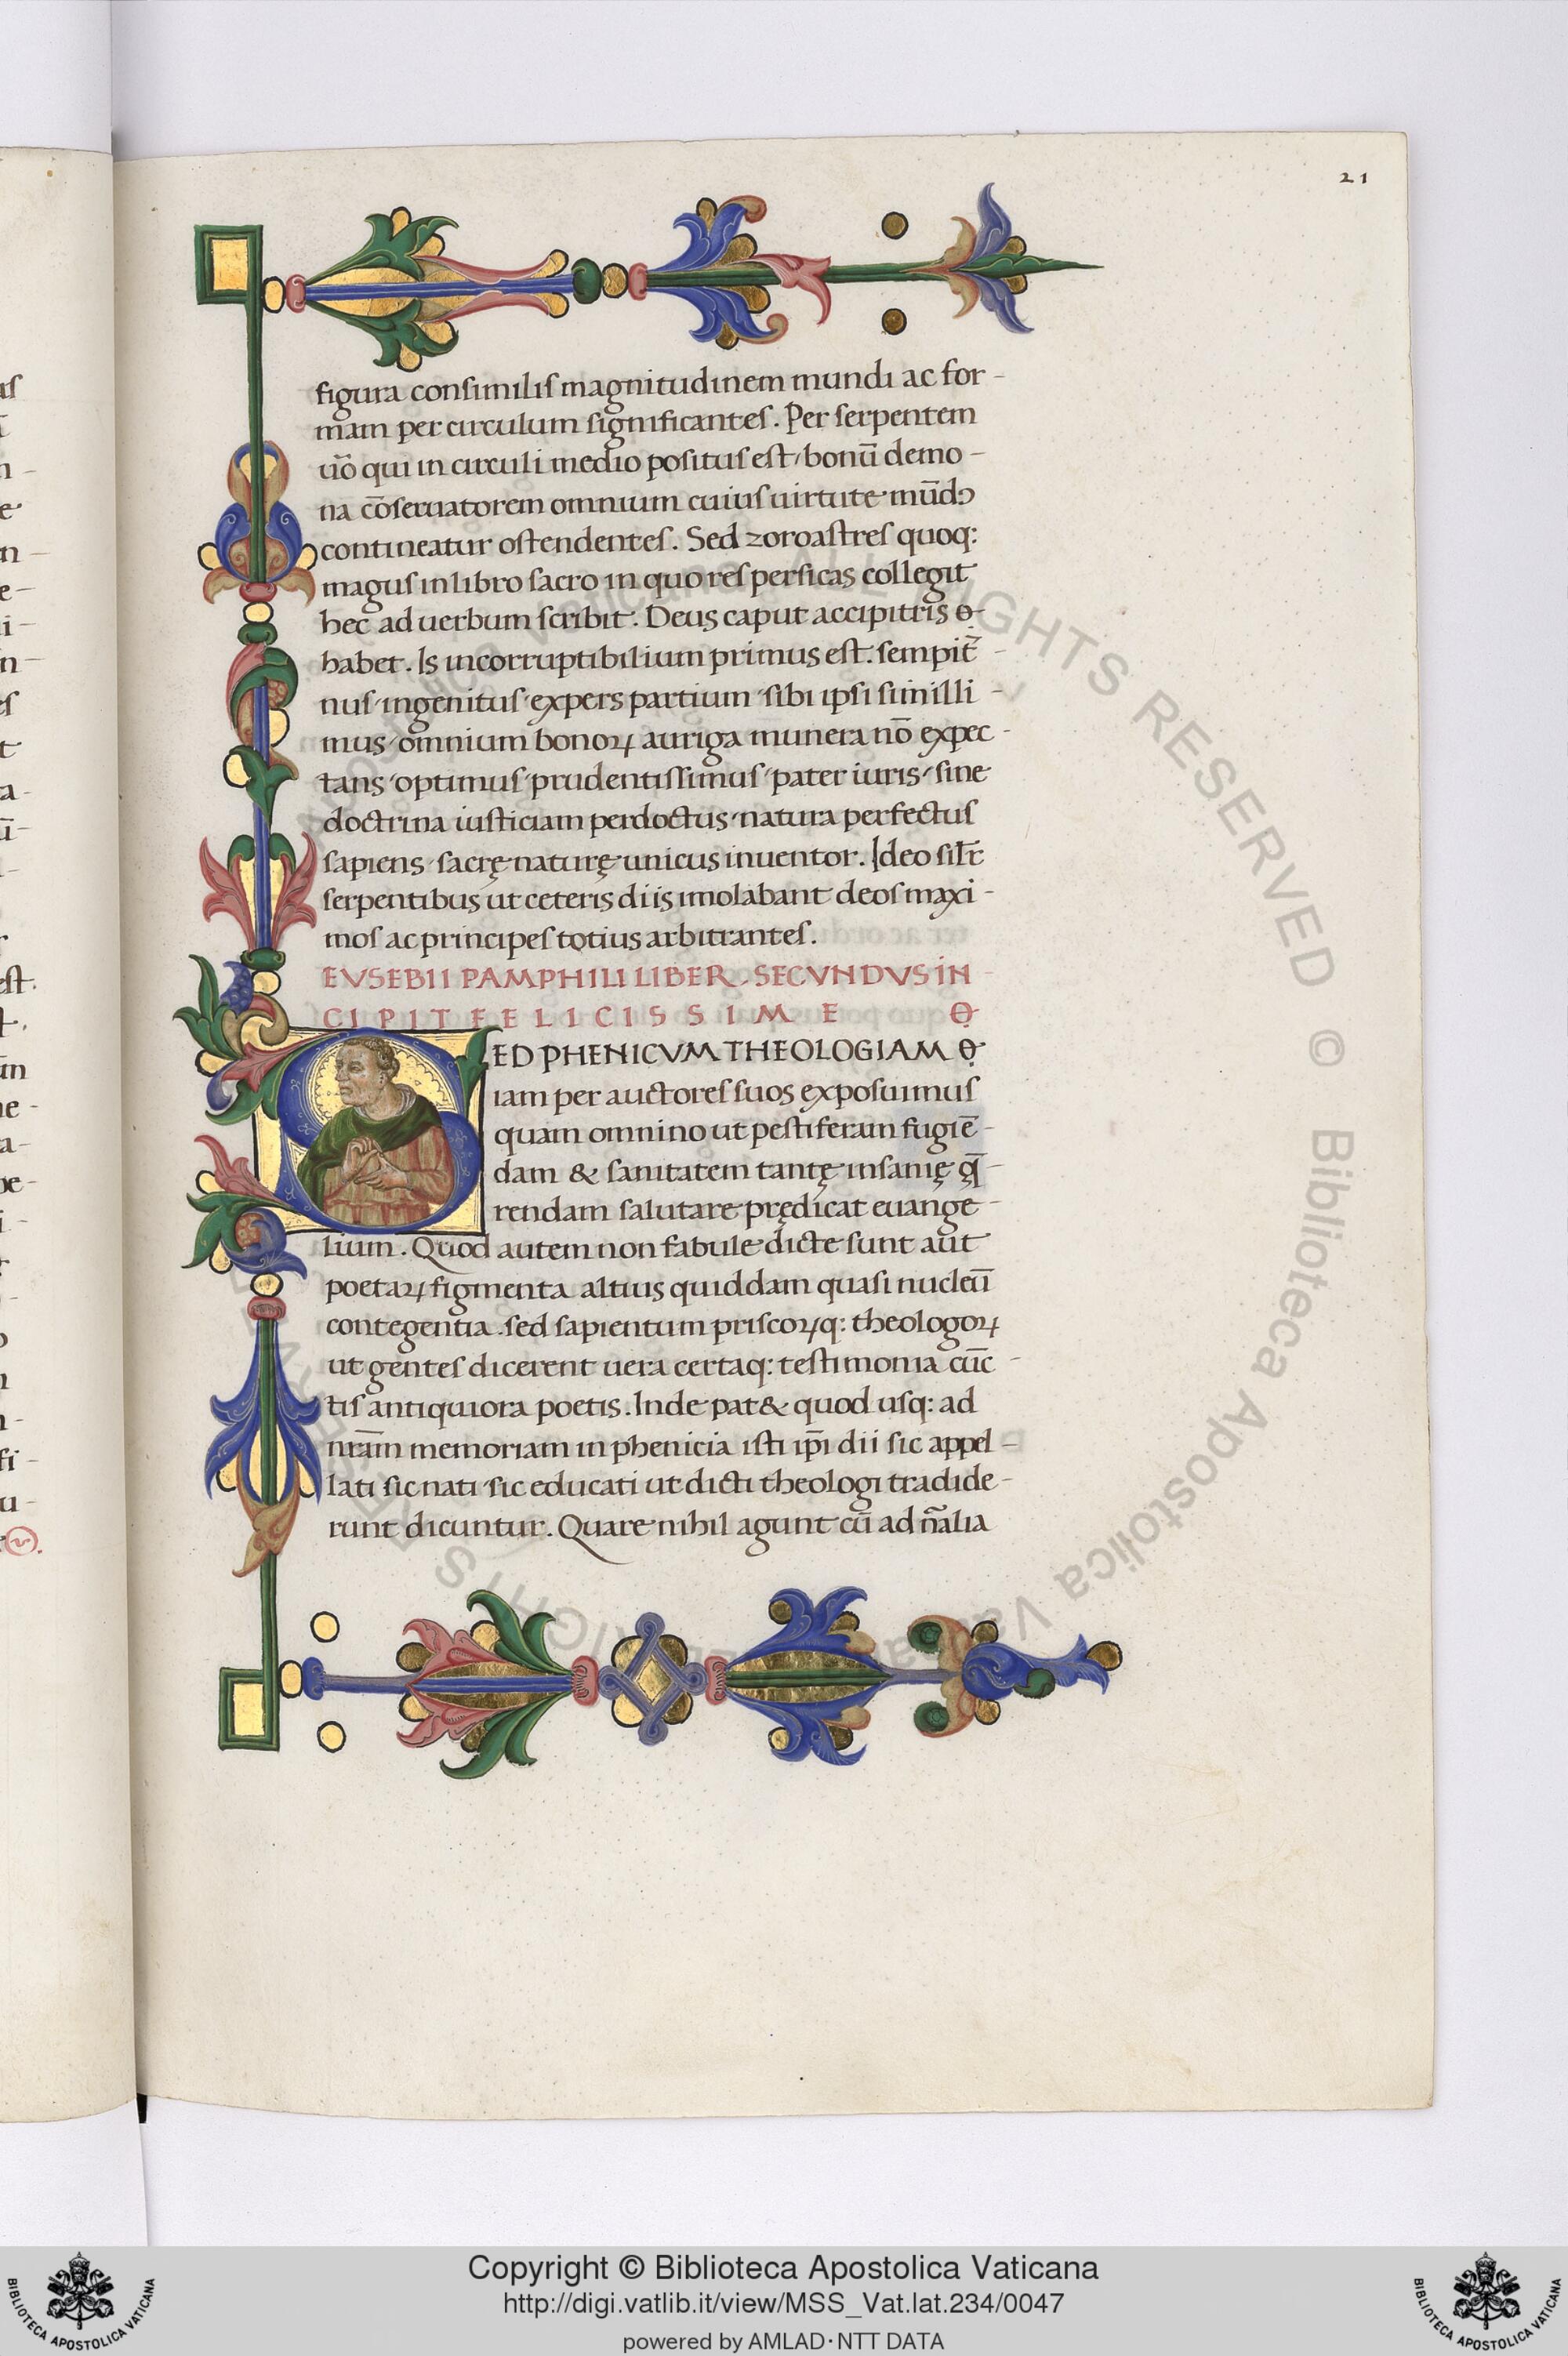 21
figura consimilis magnitudinem mundi ac for-
mam per circulum significantes. Per serpentem
uo̅ qui in circuli medio positus est bonu̅ demo-
na co̅seruatorem omnium cuius uirtute mu̅dꝰ
contineatur ostendentes. Sed zoroastres quoq:
magus in libro sacro in quo res persicas collegit
hec ad uerbum scribit. Deus caput accipitris
habet. Is incorruptibilium primus est. sempit̅-
nus ingenitus expers partium sibi ipsi simili-
mus omnium bonoꝝ auriga munera no̅ expec-
tans optimus prudentissimus pater iuris sine
doctrina iusticiam perdoctus natura perfectus
sapiens sacrę naturę unicus inuentor. Ideo silr̅
serpentibus ut ceteris diis imolabant deos maxi-
mos ac principes totius arbitrantes.
EVSEBII PAMPHILI LIBER SECVNDVS IN-
CIPIT FELICISSIME
SED PHENICVM THEOLOGIAM
iam per auctores suos exposuimus
quam omnino ut pestiferam fugie̅-
dam & sanitatem tantę insanię q̅-
rendam salutare prędicat euange-
lium. Quod autem non fabule dicte sunt aut
poetaꝝ figmenta altius quiddam quasi nucleu̅
contegentia. sed sapientum priscoꝝq: theologoꝝ
ut gentes dicerent uera certaq: testimonia cu̅c-
tis antiquiora poetis. Inde pat& quod usq: ad
nr̅am memoriam in phenicia isti ip̅i dii sic appel-
lati sic nati sic educati ut dicti theologi tradide-
runt dicuntur. Quare nihil agunt cu̅ ad n̅alia
ALL RIGHTS RESERVED © Biblioteca Apostolica Vaticana
Copyright © Biblioteca Apostolica Vaticana
http://digi.vatlib.it/view/MSS_Vat.lat.234/0047
powered by AMLAD·NTT DATA
BIBLIOTECA APOSTOLICA VATICANA
BIBLIOTECA APOSTOLICA VATICANA